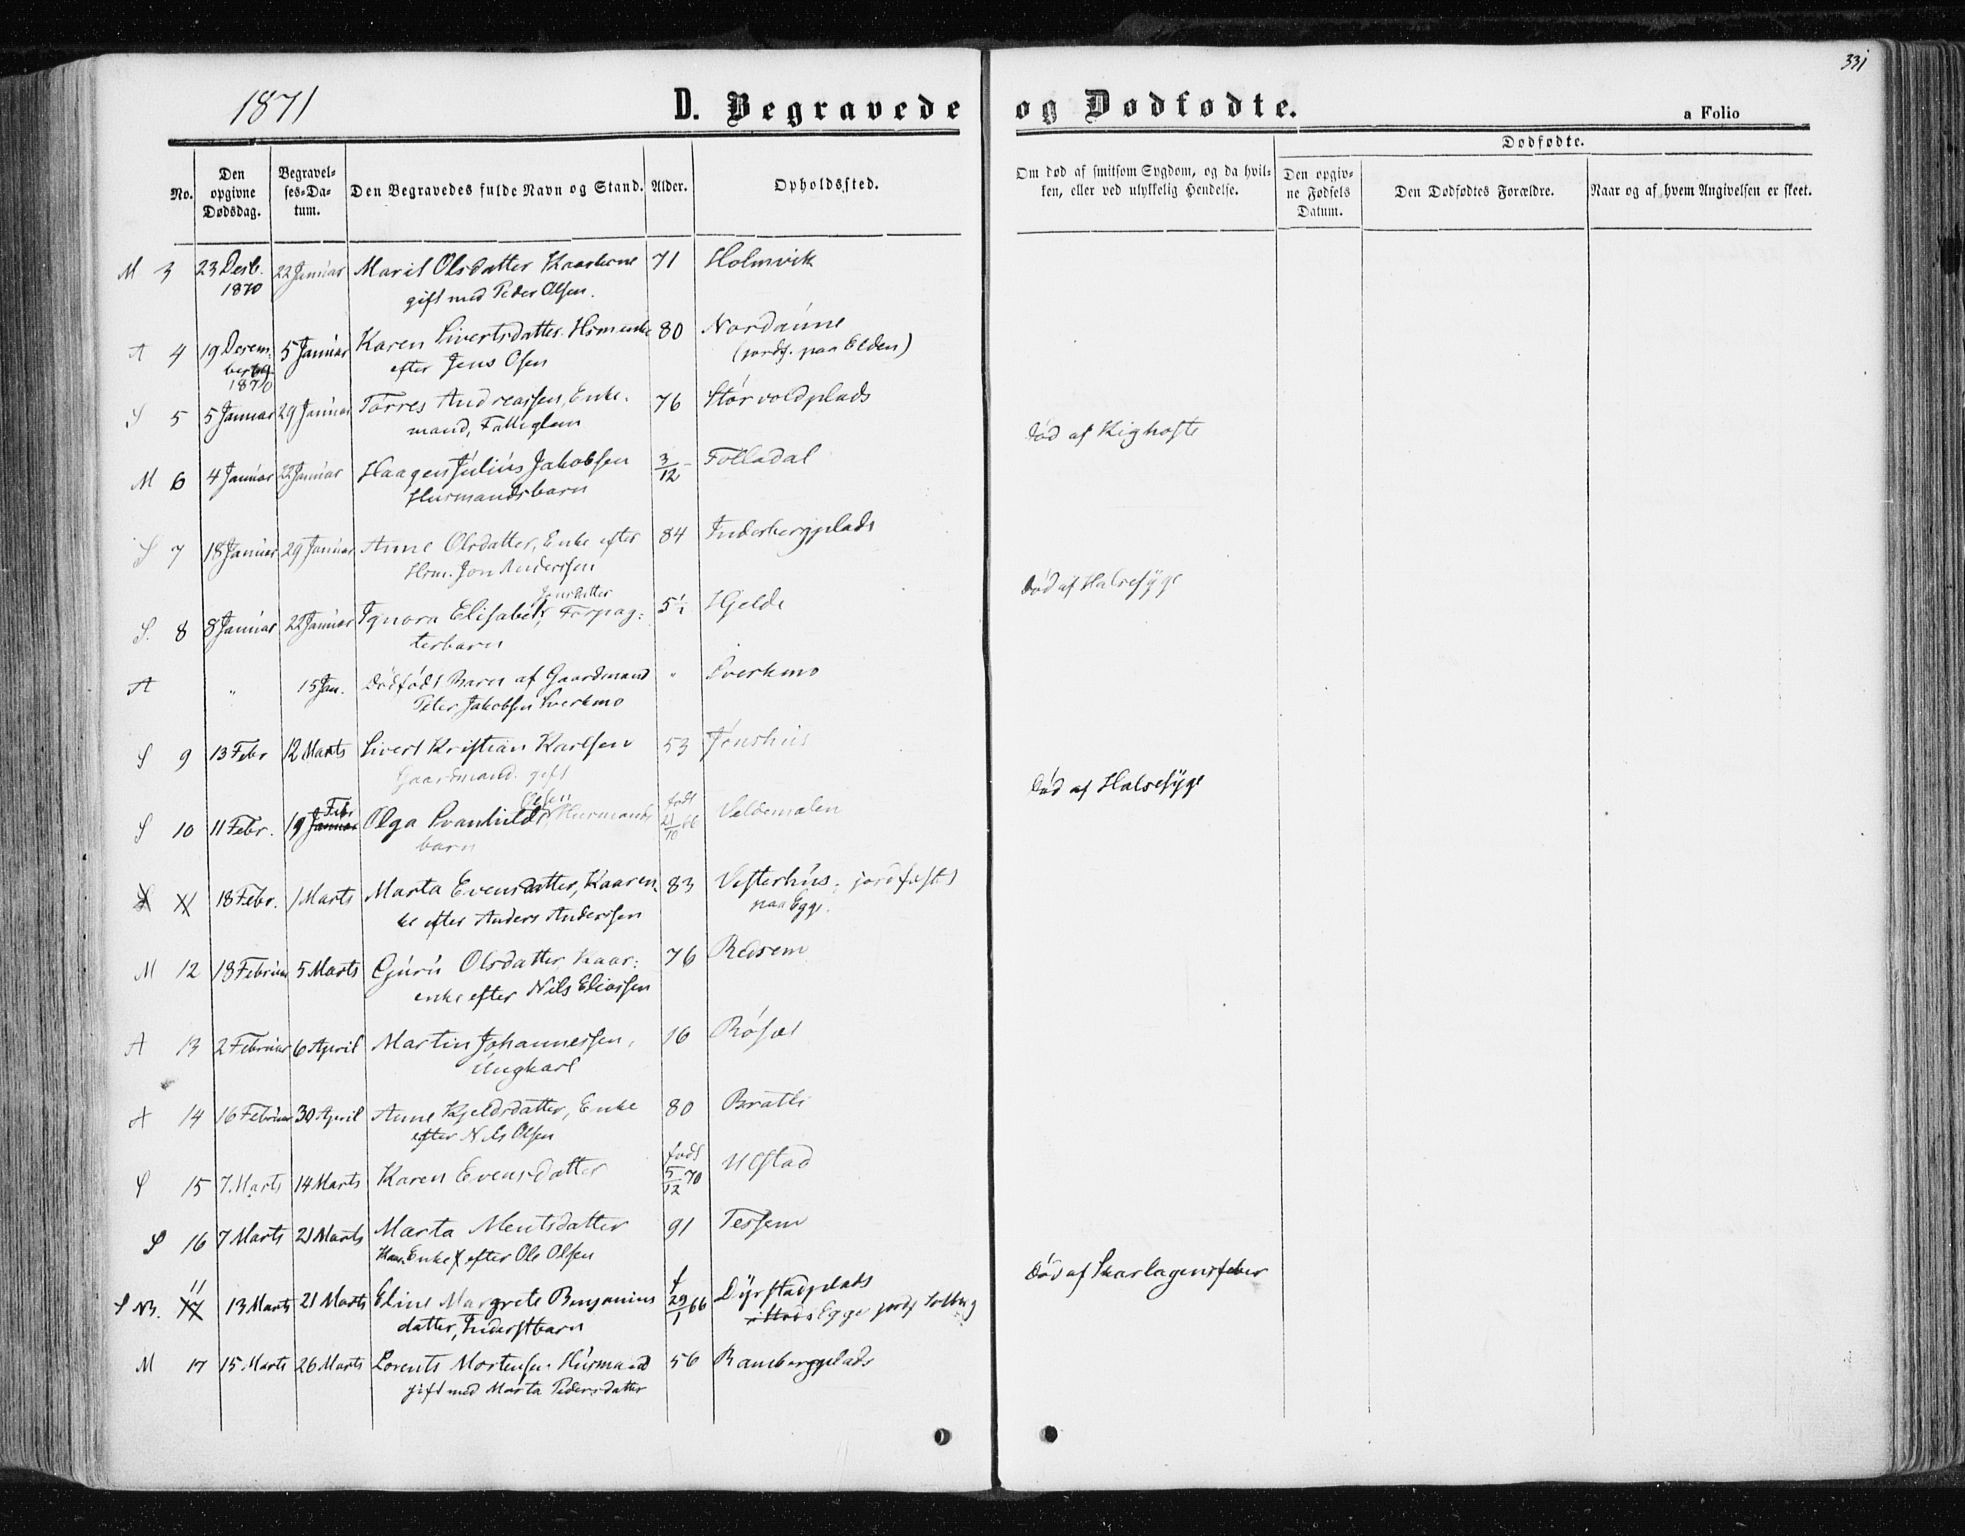 331
1871
D. Begravede og Dødfødte.
a Folio
No.
Den opgivne Dødsdag.
Begravelses-Datum.
Den Begravedes fulde Navn og Stand.
Alder.
Opholdssted.
Om død af smitsom Sygdom, og da hvilken, eller ved ulykkelig Hendelse.
Dødfødte.
Den opgivne Fødsels Datum.
Den Dødfødtes Forældre.
Naar og af hvem Angivelsen er skeet.
M 3 23 Desb. 22 Januar Marit Olsdatter Kaarkone 71 Holmvik
1870 gift med Peder Olsen.
A 4 19 Decem- 5 Januar Karen Sivertsdatter Hsmenke 80 Nordaune
ber efter Jens Olsen (jordf. paa Elden)
1870
S 5 5 Januar 29 Januar Torres Andreassen, Enke- 76 Storvoldplads
mand, Fattiglem
Død af Kighoste
M 6 4 Januar 22 Januar Haagen Julius Jakobsen 3/12 Folladal
Husmandsbarn
S 7 18 Januar 29 Januar Anne Olsdatter, Enke efter 84 Inderbergplads
Hsm. Jon Anderssen
Død af Halsesyge
S. 8 8 Januar 22 Januar Ignora Elisabet, Forpag- 5½ Hjelde
terbarn
A " 15 Jan. Dødfødt Barn af Gaardmand " Sverkmo
Peter Jakobsen Sverkmo
S 9 13 Febr 12 Marts Sivert Kristian Karlsen 53 Jønshus
Gaardmand. gift
Død af Halsesyge
Febr Olsen født
S 10 11 Febr. 19 Januar Olga Svanhilde, Husmands 21/10 66 Veldemalen
barn
18 Febr. 1 Marts Marta Evensdatter, Kaaren- 83 Vesterhus, jordfæstet
ke efter Anders Anderssen paa Egge.
M 12 18 Februar 5 Marts Guru Olsdatter Kaar- 76 Redsem
enke efter Nils Eliassen
A 13 2 Februar 6 April Martin Johannessen, 16 Røsæt
Ungkarl
A 14 16 Februar 30 April Anne Kjeldsdatter, Enke 80 Bratli
efter Nils Olsen
født
S 15 7 Marts 14 Marts Karen Evensdatter 5/12 70 Ulstad
S 16 7 Marts 21 Marts Marta Mentsdatter 91 Tessem
Kaar Enke efter Ole Olsen
Død af Skarlagensfeber
11
S NB. 17 13 Marts 21 Marts Eline Margrete Benjamins f 29/1 66 Dyrstadplads
datter, Inderstbarn Egge jordf Solberg
M 17 15 Marts 26 Marts Lorents Mortensen Husmand 56 Rambergplads
gift med Marta Pedersdatter